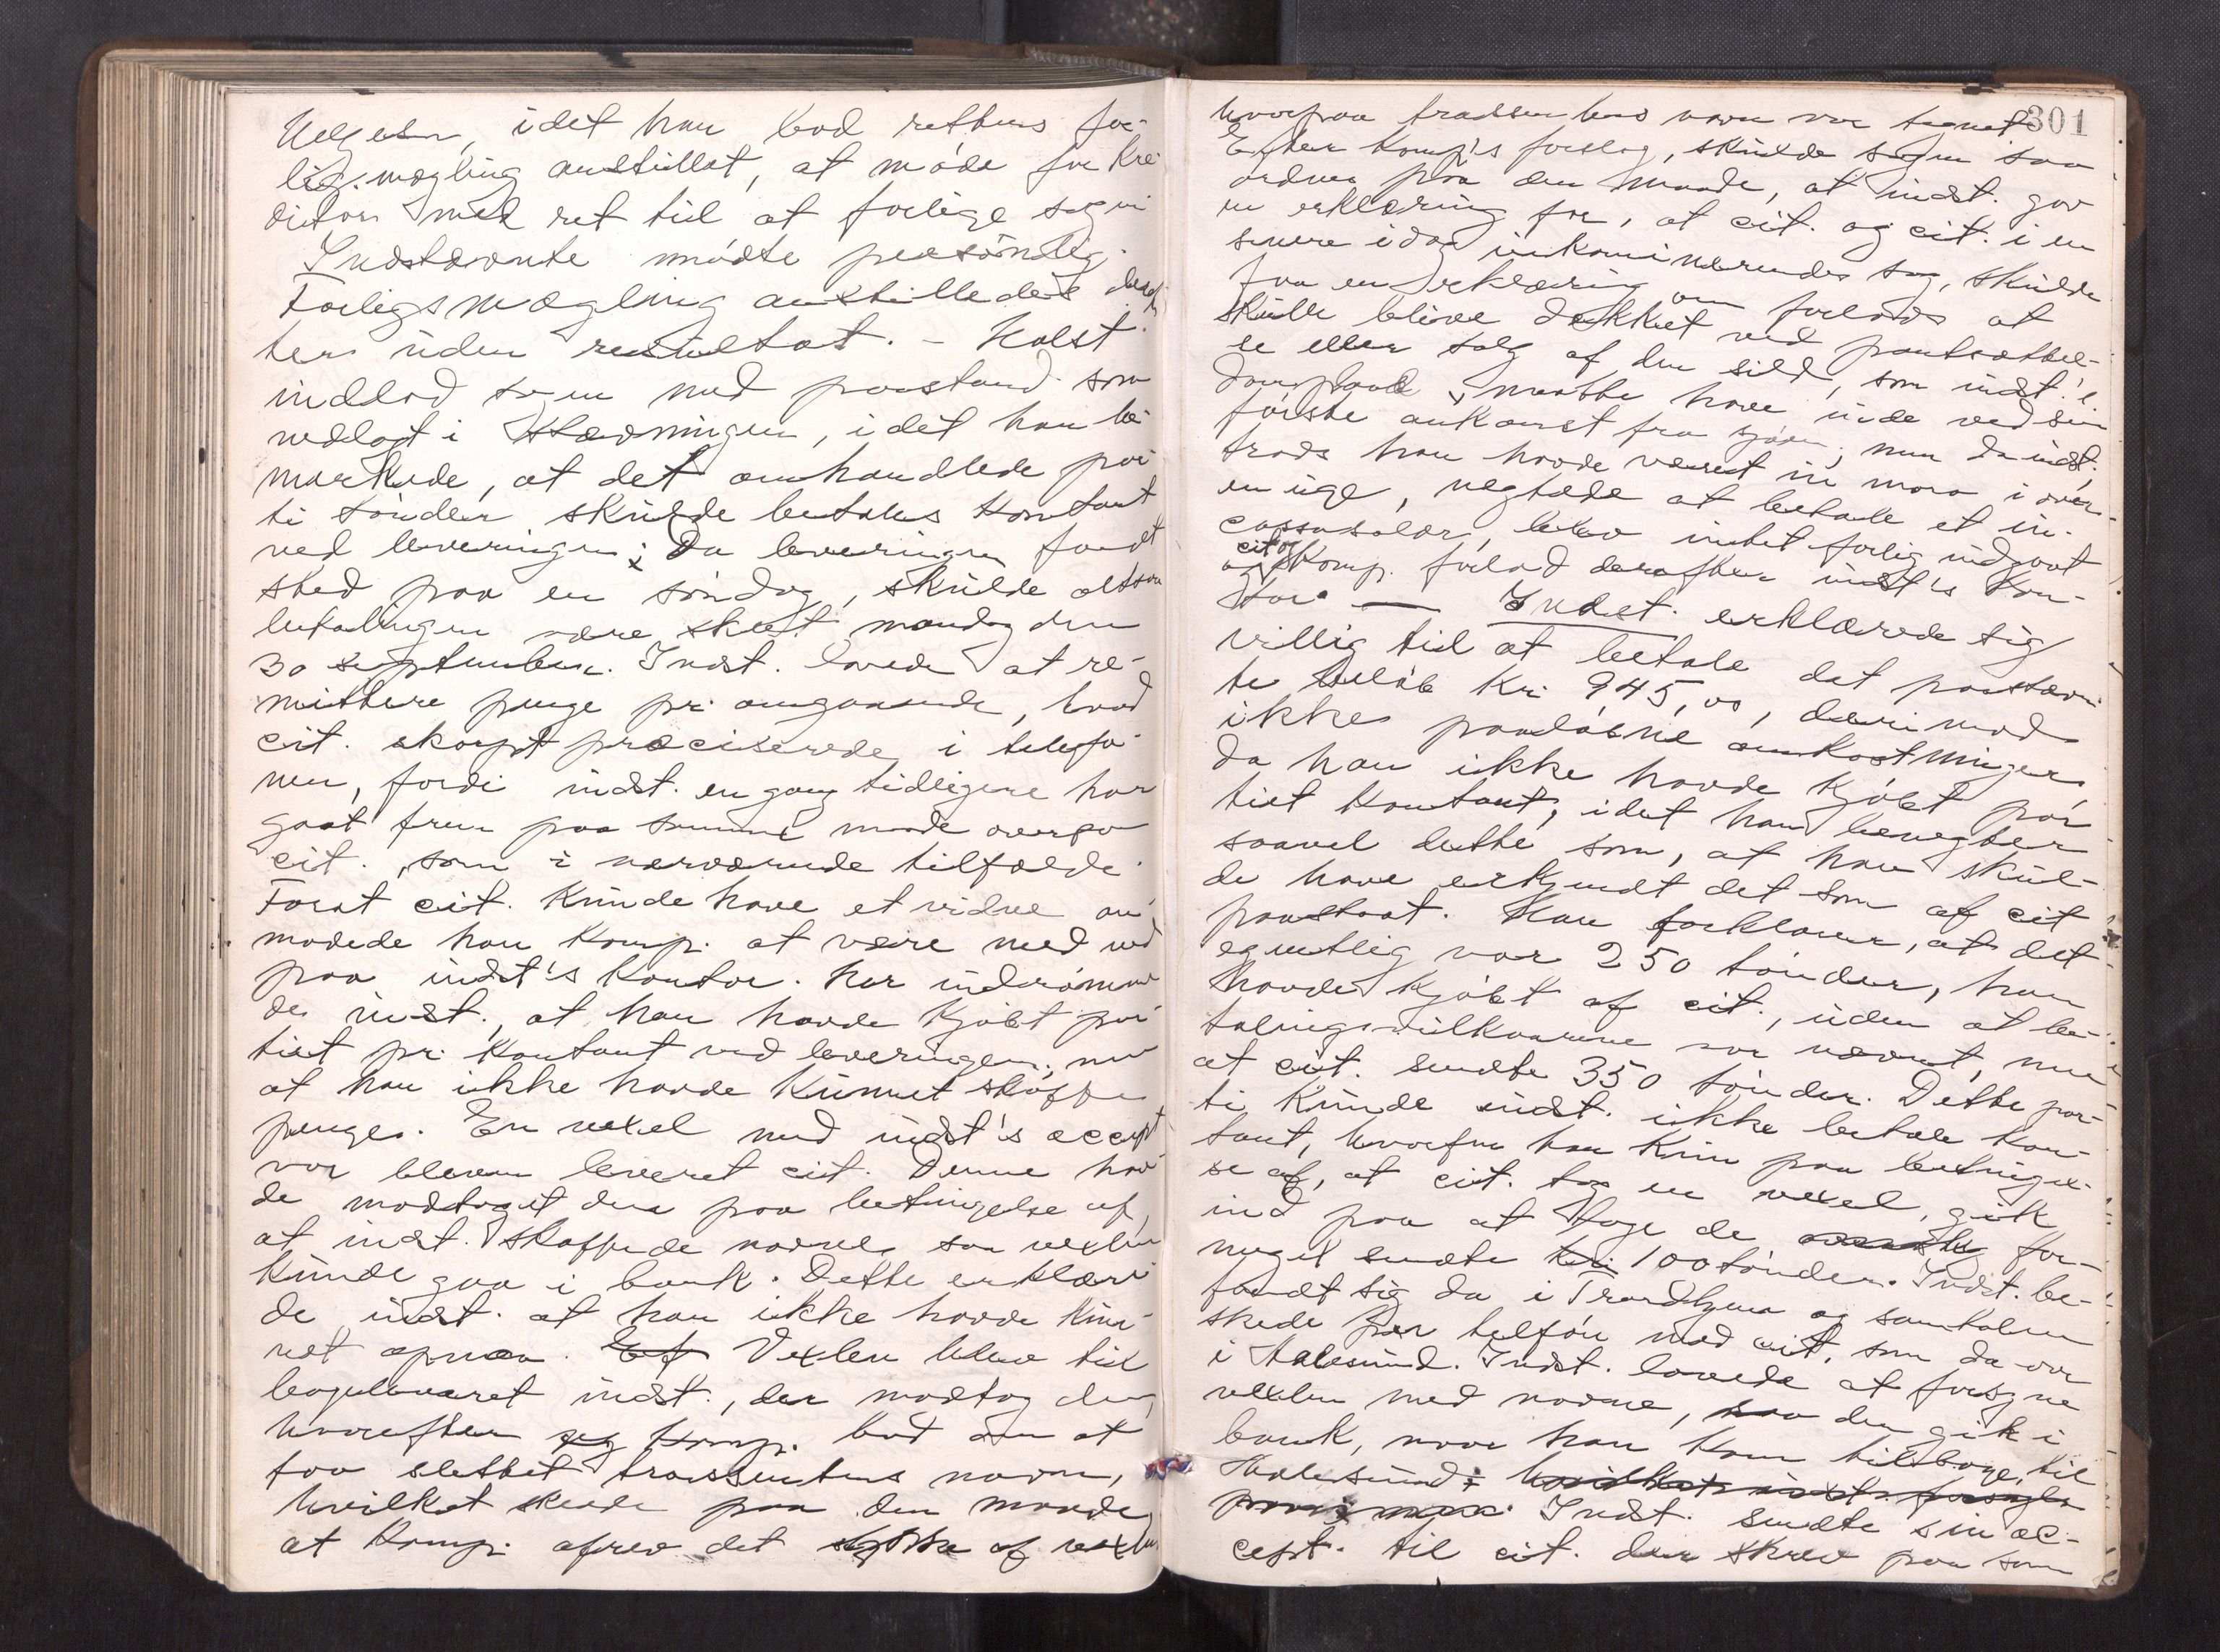 Helgesen, idet han bad rettens for-
ligsmægling anstillet, at møde for kre-
ditor med ret til at forlige sagen
Indstævnte mødte personlig.
Forligsmægling anstilledes deref-
ter uden resultat. – Holst
indlod sagen med paastand som
nedlagt i stævningen, idet han be-
mærkede, at det omhandlede par-
ti tønder skulde betales kontant
ved leveringen; Da leveringen fandt
sted paa en søndag, skulde altsaa
betalingen være skeet mandag den
30 september. Indst. lovede at re-
mittere penge pr. omgaaende, hvad
cit. skarpt præciserede i telefo-
nen, fordi indst. engang tidligere har
gaat frem paa samme maade overfor
cit., som i nærværende tilfælde.
Forat cit. kunde have et vidne an-
modede han komp. at være med ned
paa indst's kontor. Her indrømme-
de indst., at han havde kjøbt par-
tiet pr. kontant ved leveringen, men
at han ikke havde kunnet skaffe
penger. En vexel med indst's accept
var bleven leveret cit. Denne hav-
de modtaget den paa betingelse af,
at indst. skaffede navne saa vexlen
kunde gaa i bank. Dette erklære-
de indst. at han ikke havde kun-
net opnaa. Vexlen blev til-
bageleveret indst., der modtog den,
hvorefter jeg komp. bad om at
faa slettet trassentens navn,
hvilket skede paa den maade
at komp. afrev det stykke af vexlen
301
hvorpaa trassentens navn var tegnet
Efter komp's forslag, skulde sagen saa
ordnes paa den maade, at indst. gav
en erklæring for, at cit. og cit. i en
senere idag inkaminerende sag, skulde
faa en erklæring om forlods at
skulle blive dækket ved pantsættel-
se eller salg af den sild, som indst.'s
damplaad maatte have inde ved sin
første ankomst fra sjøen; men da indst.
trods han havde været in mora i over
en uge, negtede at betale et in-
cassosalær, blev intet forlig indgaat
cit og
og komp. forlod derefter indst's kon-
tor. — Indst. erklærede sig
villig til at betale det paastævn-
te beløb kr. 945,00, derimod
ikke paaløbne omkostninger,
da han ikke havde kjøbt par-
tiet kontant, idet han benegter
saavel dette som, at han skul-
de have erkjendt det som af cit
paastaat. Han forklarer, at det
egentlig var 250 tønder, han
havde kjøbt af cit., uden at be-
talingsvilkaarene var nævnt, men
at cit. sendte 350 tønder. Dette par-
ti kunde indst. ikke betale kon-
tant, hvorfor han kun paa betingel-
se af, at cit. tog en vexel, gik
ind paa at tage de for-
meget sendte 100 tønder. Indst. be-
fandt sig da i Trondhjem og samtalen
skede per telefon med cit. som da var
i Aalesund. Indst. lovede at forsyne
vexlen med navne, saa den gik i
bank, naar han kom tilbage til
Aalesund.
Indst. sendte sin ac-
cept. til cit. der skrev paa som